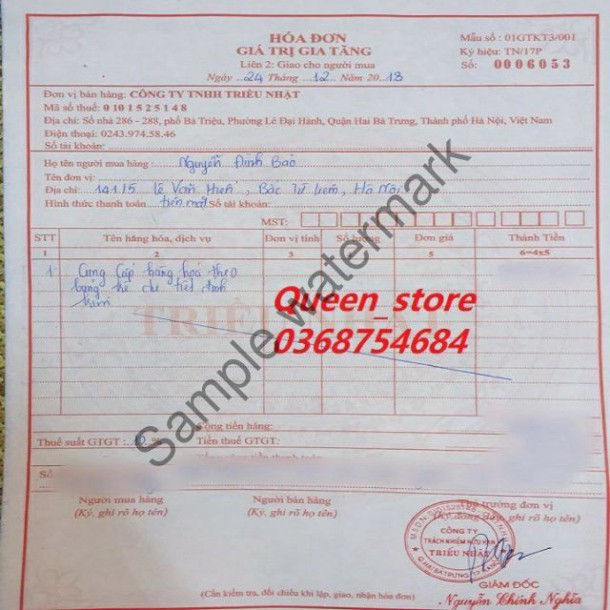 HÓA ĐƠN
GIÁ TRỊ GIA TĂNG
Liên 2: Giao cho người mua
Ngày 24 Tháng 12 Năm 2018
Mẫu số : 01GTKT3/001
Ký hiệu: TN/17P
Số: 0006053
Đơn vị bán hàng: CÔNG TY TNHH TRIỀU NHẬT
Mã số thuế: 0101525148
Địa chỉ: Số nhà 286 - 288, phố Bà Triệu, Phường Lê Đại Hành, Quận Hai Bà Trưng, Thành phố Hà Nội, Việt Nam
Điện thoại: 0243.974.58.46
Số tài khoản:
Họ tên người mua hàng : Nguyễn Đình Bảo
Tên đơn vị:
Địa chỉ: 14115 Lê Văn Hiến, Bắc Từ Liêm, Hà Nội
Hình thức thanh toán tiền mặt Số tài khoản:
MST:
STT Tên hàng hóa, dịch vụ Đơn vị tính Số lượng Đơn giá Thành Tiền
1 2 3 5 6=4x5
1 Cung cấp hàng hóa theo
bảng kê chi tiết đính
kèm
TRIỀU NHẬT
Queen_store
0368754684
Sample watermark
Cộng tiền hàng:
Thuế suất GTGT : 10 % Tiền thuế GTGT:
Số
Người mua hàng Người bán hàng Thủ trưởng đơn vị
(Ký, ghi rõ họ tên) (Ký, ghi rõ họ tên) (Ký, đóng dấu, ghi rõ họ tên)
CÔNG TY
TRÁCH NHIỆM HỮU HẠN
TRIỀU NHẬT
GIÁM ĐỐC
Nguyễn Chính Nghĩa
(Cần kiểm tra, đối chiếu khi lập, giao, nhận hóa đơn)